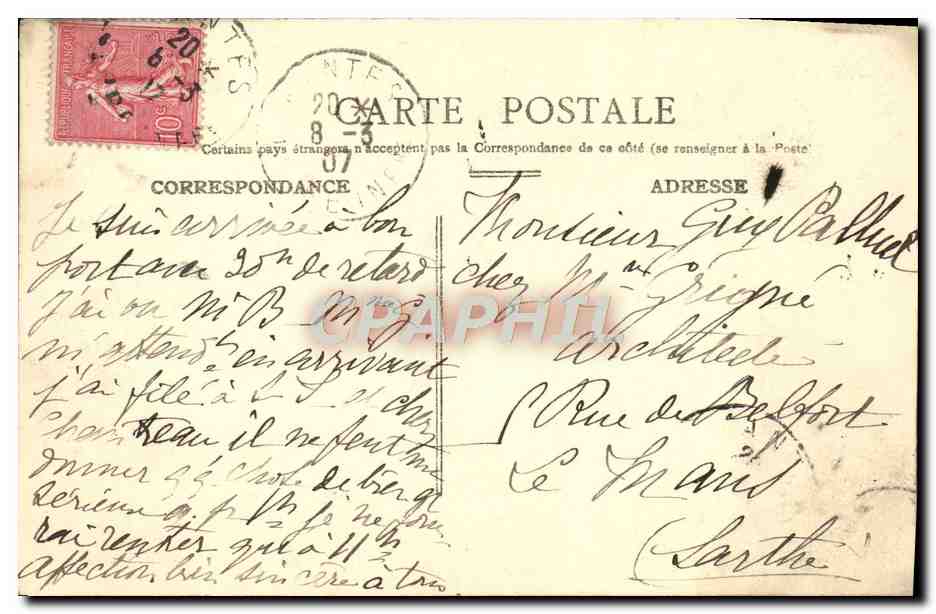 RÉPUBLIQUE FRANÇAISE
10c
20 *
8 - 3
07
CARTE POSTALE
Certains pays étrangers n'acceptent pas la Correspondance de ce côté (se renseigner à la Poste)
CORRESPONDANCE
ADRESSE
Je suis arrivée à bon
port avec 20m de retard
J'ai vu Mr B Mme G.
m'attendt en arrivant
j'ai filé à et chez
il ne peut me
donner qq chose de bien
sérieux je ne pour
rai rentrer qu'à 11h
affection bien sincère à tous
Monsieur Guy Palluet
chez Mr Grigné
architecte
5 Rue de Belfort
Le Mans
(Sarthe)
CPAPHIL